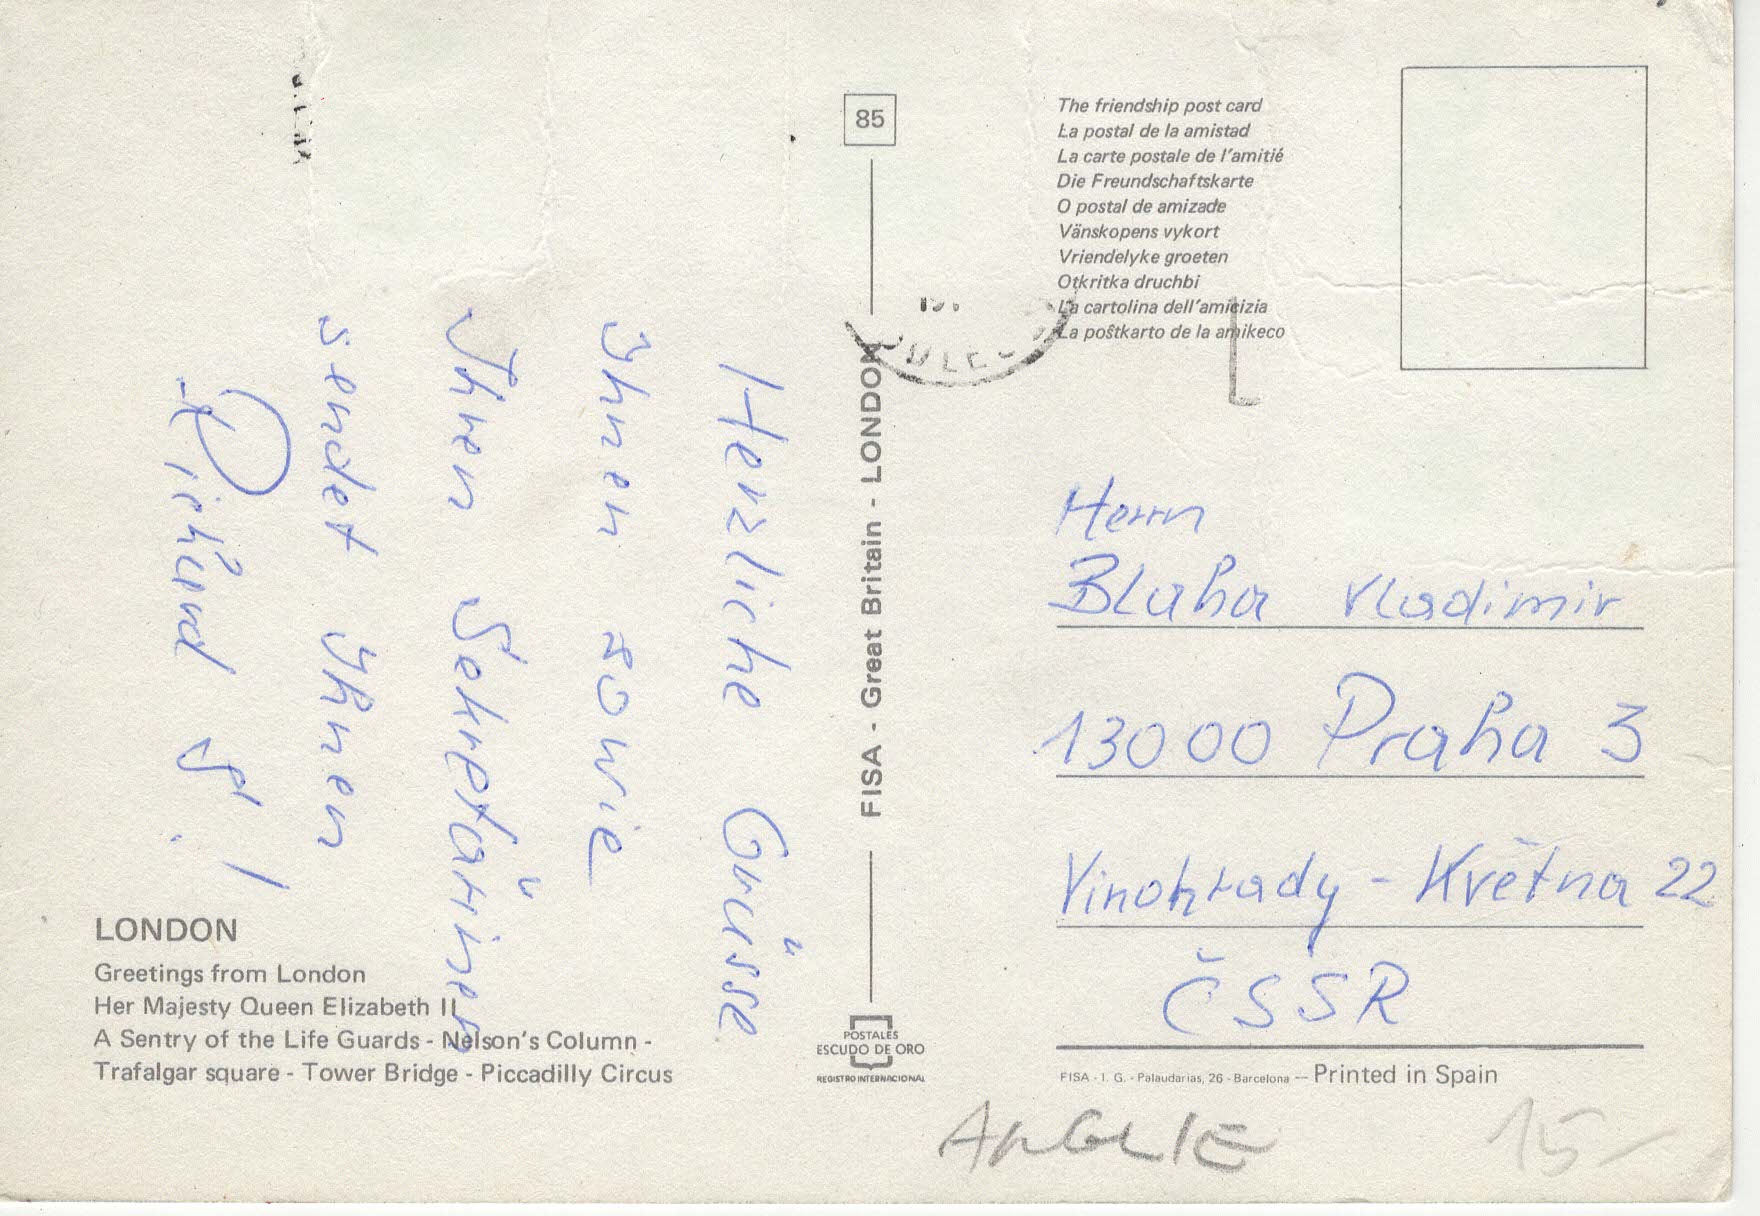 85
The friendship post card
La postal de la amistad
La carte postale de l'amitié
Die Freundschaftskarte
O postal de amizade
Vänskopens vykort
Vriendelyke groeten
Otkritka druchbi
La cartolina dell'amicizia
La poŝtkarto de la amikeco
Herzliche Grüsse
Ihnen sowie
Ihren Sekretärinen
sendet Ihnen
FISA - Great Britain - LONDON
Herrn
Blaha Vladimir
13000 Praha 3
Vinohrady - Května 22
ČSSR
LONDON
Greetings from London
Her Majesty Queen Elizabeth II
A Sentry of the Life Guards - Nelson's Column -
Trafalgar square - Tower Bridge - Piccadilly Circus
POSTALES
ESCUDO DE ORO
REGISTRO INTERNACIONAL
FISA - I. G. - Palaudarias, 26 - Barcelona — Printed in Spain
ANGLIE 15-